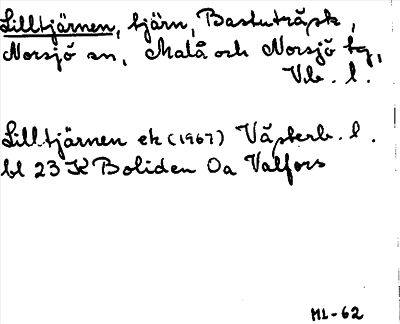 Lilltjärnen, tjärn, Bastuträsk,
Norsjö sn, Malå och Norsjö tg,
Vb. l.
Lilltjärnen ek (1967) Västerb. l.
bl 23 K Boliden 0a Valfors
ML-62